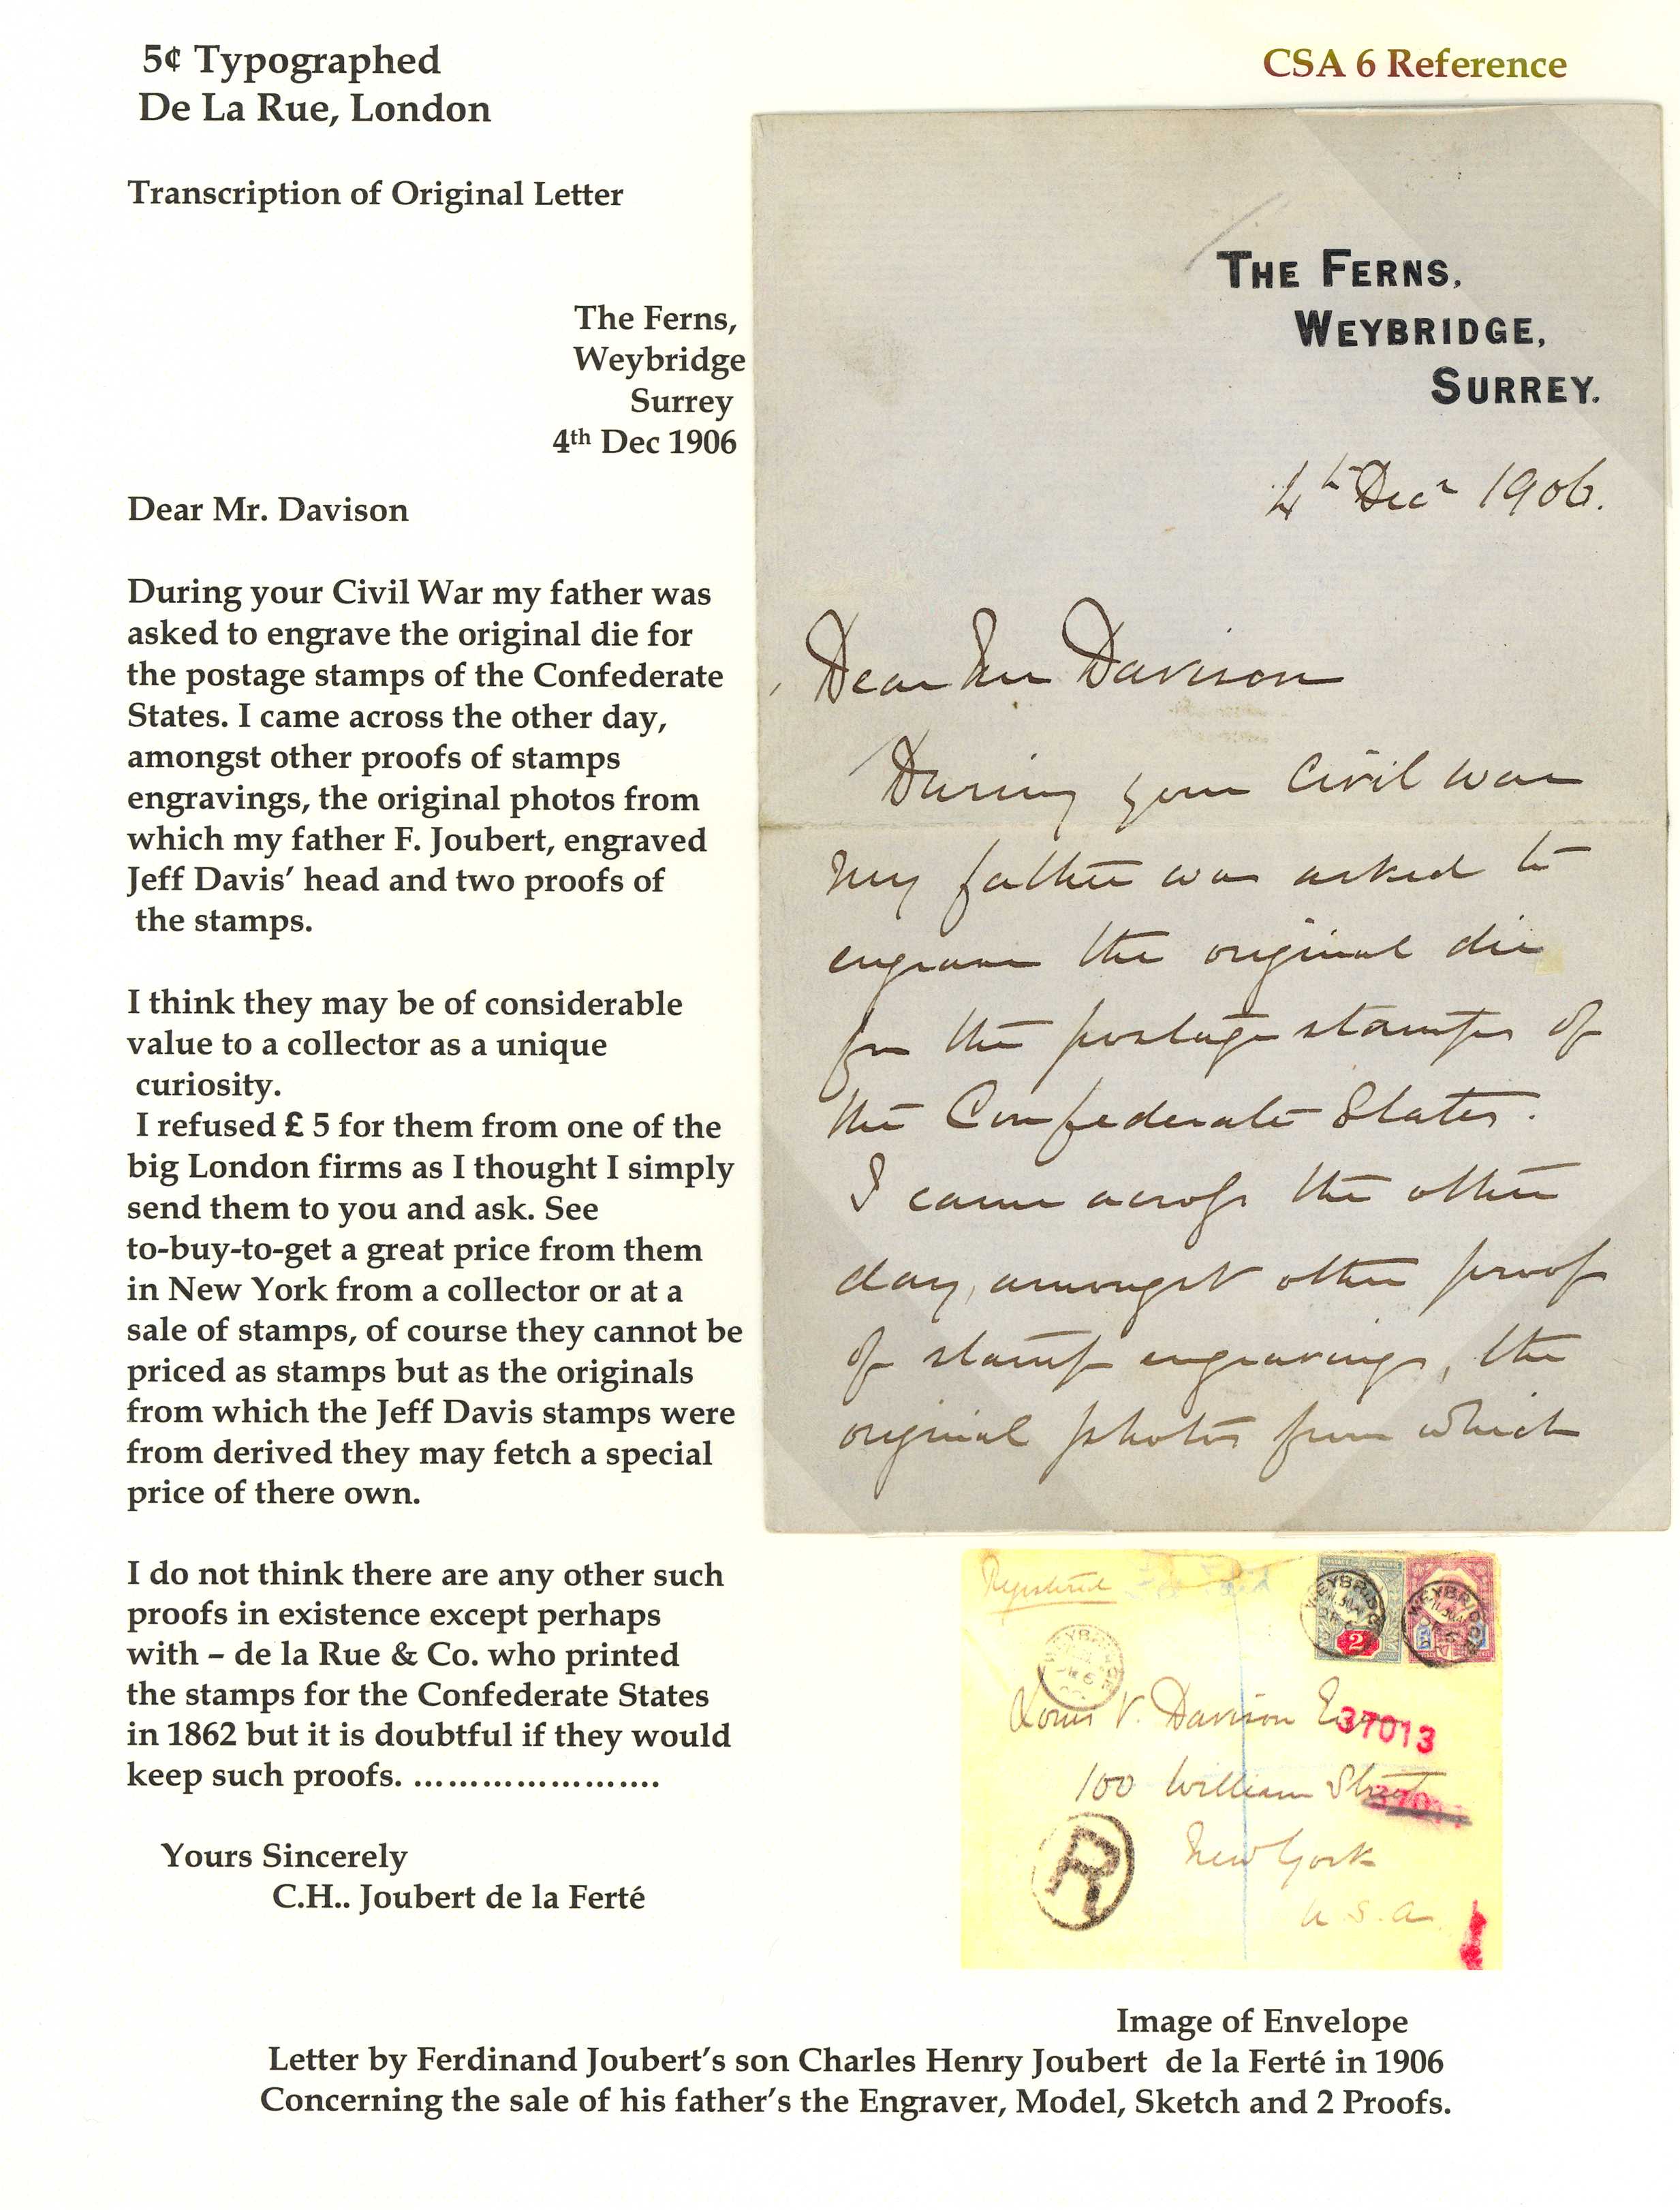 5¢ Typographed
De La Rue, London
CSA 6 Reference
Transcription of Original Letter
The Ferns,
Weybridge
Surrey
4th Dec 1906
Dear Mr. Davison
During your Civil War my father was
asked to engrave the original die for
the postage stamps of the Confederate
States. I came across the other day,
amongst other proofs of stamps
engravings, the original photos from
which my father F. Joubert, engraved
Jeff Davis’ head and two proofs of
the stamps.
I think they may be of considerable
value to a collector as a unique
curiosity.
I refused £ 5 for them from one of the
big London firms as I thought I simply
send them to you and ask. See
to-buy-to-get a great price from them
in New York from a collector or at a
sale of stamps, of course they cannot be
priced as stamps but as the originals
from which the Jeff Davis stamps were
from derived they may fetch a special
price of there own.
I do not think there are any other such
proofs in existence except perhaps
with – de la Rue & Co. who printed
the stamps for the Confederate States
in 1862 but it is doubtful if they would
keep such proofs. ......................
Yours Sincerely
C.H.. Joubert de la Ferté
THE FERNS,
WEYBRIDGE,
SURREY.
4th Decr 1906.
Dear Mr Davison
During your Civil War
my father was asked to
engrave the original die
for the postage stamps of
the Confederate States.
I came across the other
day, amongst other proofs
of stamp engravings, the
original photos from which
Registered
WEYBRIDGE
WEYBRIDGE
WEYBRIDGE
2
Louis V. Davison Esq
37013
100 William Street
New York
U.S.A.
R
Image of Envelope
Letter by Ferdinand Joubert’s son Charles Henry Joubert de la Ferté in 1906
Concerning the sale of his father’s the Engraver, Model, Sketch and 2 Proofs.